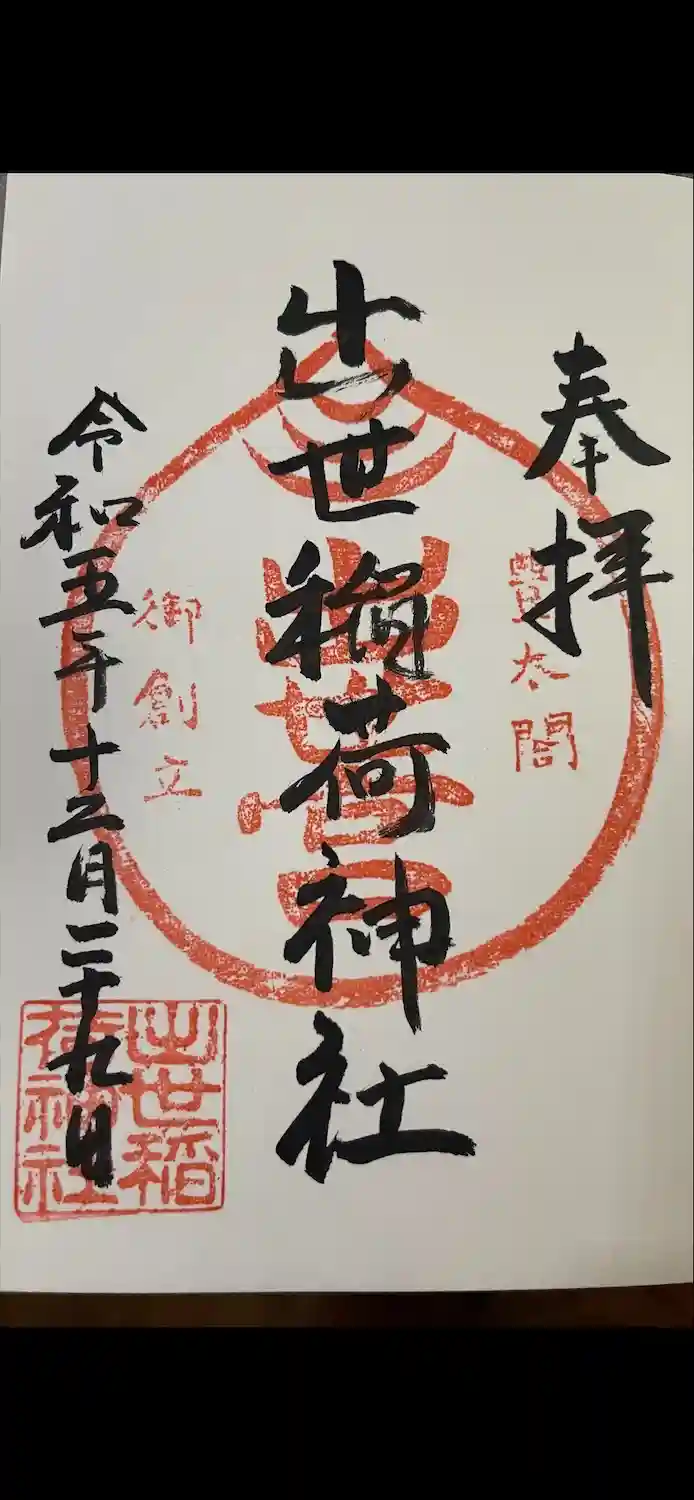 奉拝
豊太閤
出世稲荷神社
出世稲荷
御創立
令和五年十二月二十九日
出世稲
荷神社